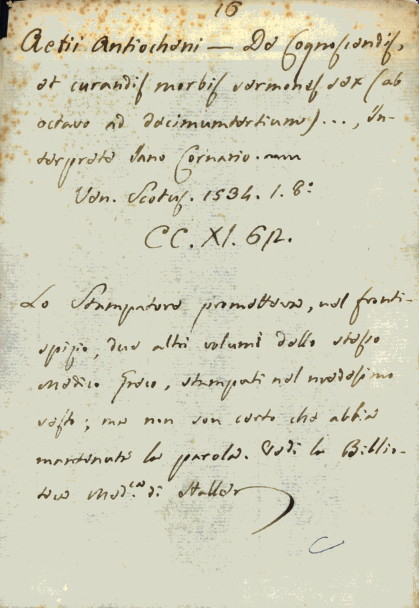 16
Aetii Antiocheni — De Cognoscendis,
et curandis morbis sermones sex (ab
octavo ad decimumtertium)..., In-
terprete Jano Cornario.
Ven. Scotus. 1534. 1. 8:
CC. XI. 6/2.
Lo Stampatore prometteva, nel fronti-
spizio, due altri volumi dello stesso
Medico Greco, stampati nel medesimo
sesto; ma non son certo che abbia
mantenuta la parola. Vedi la Biblio-
teca Med.ca di Haller